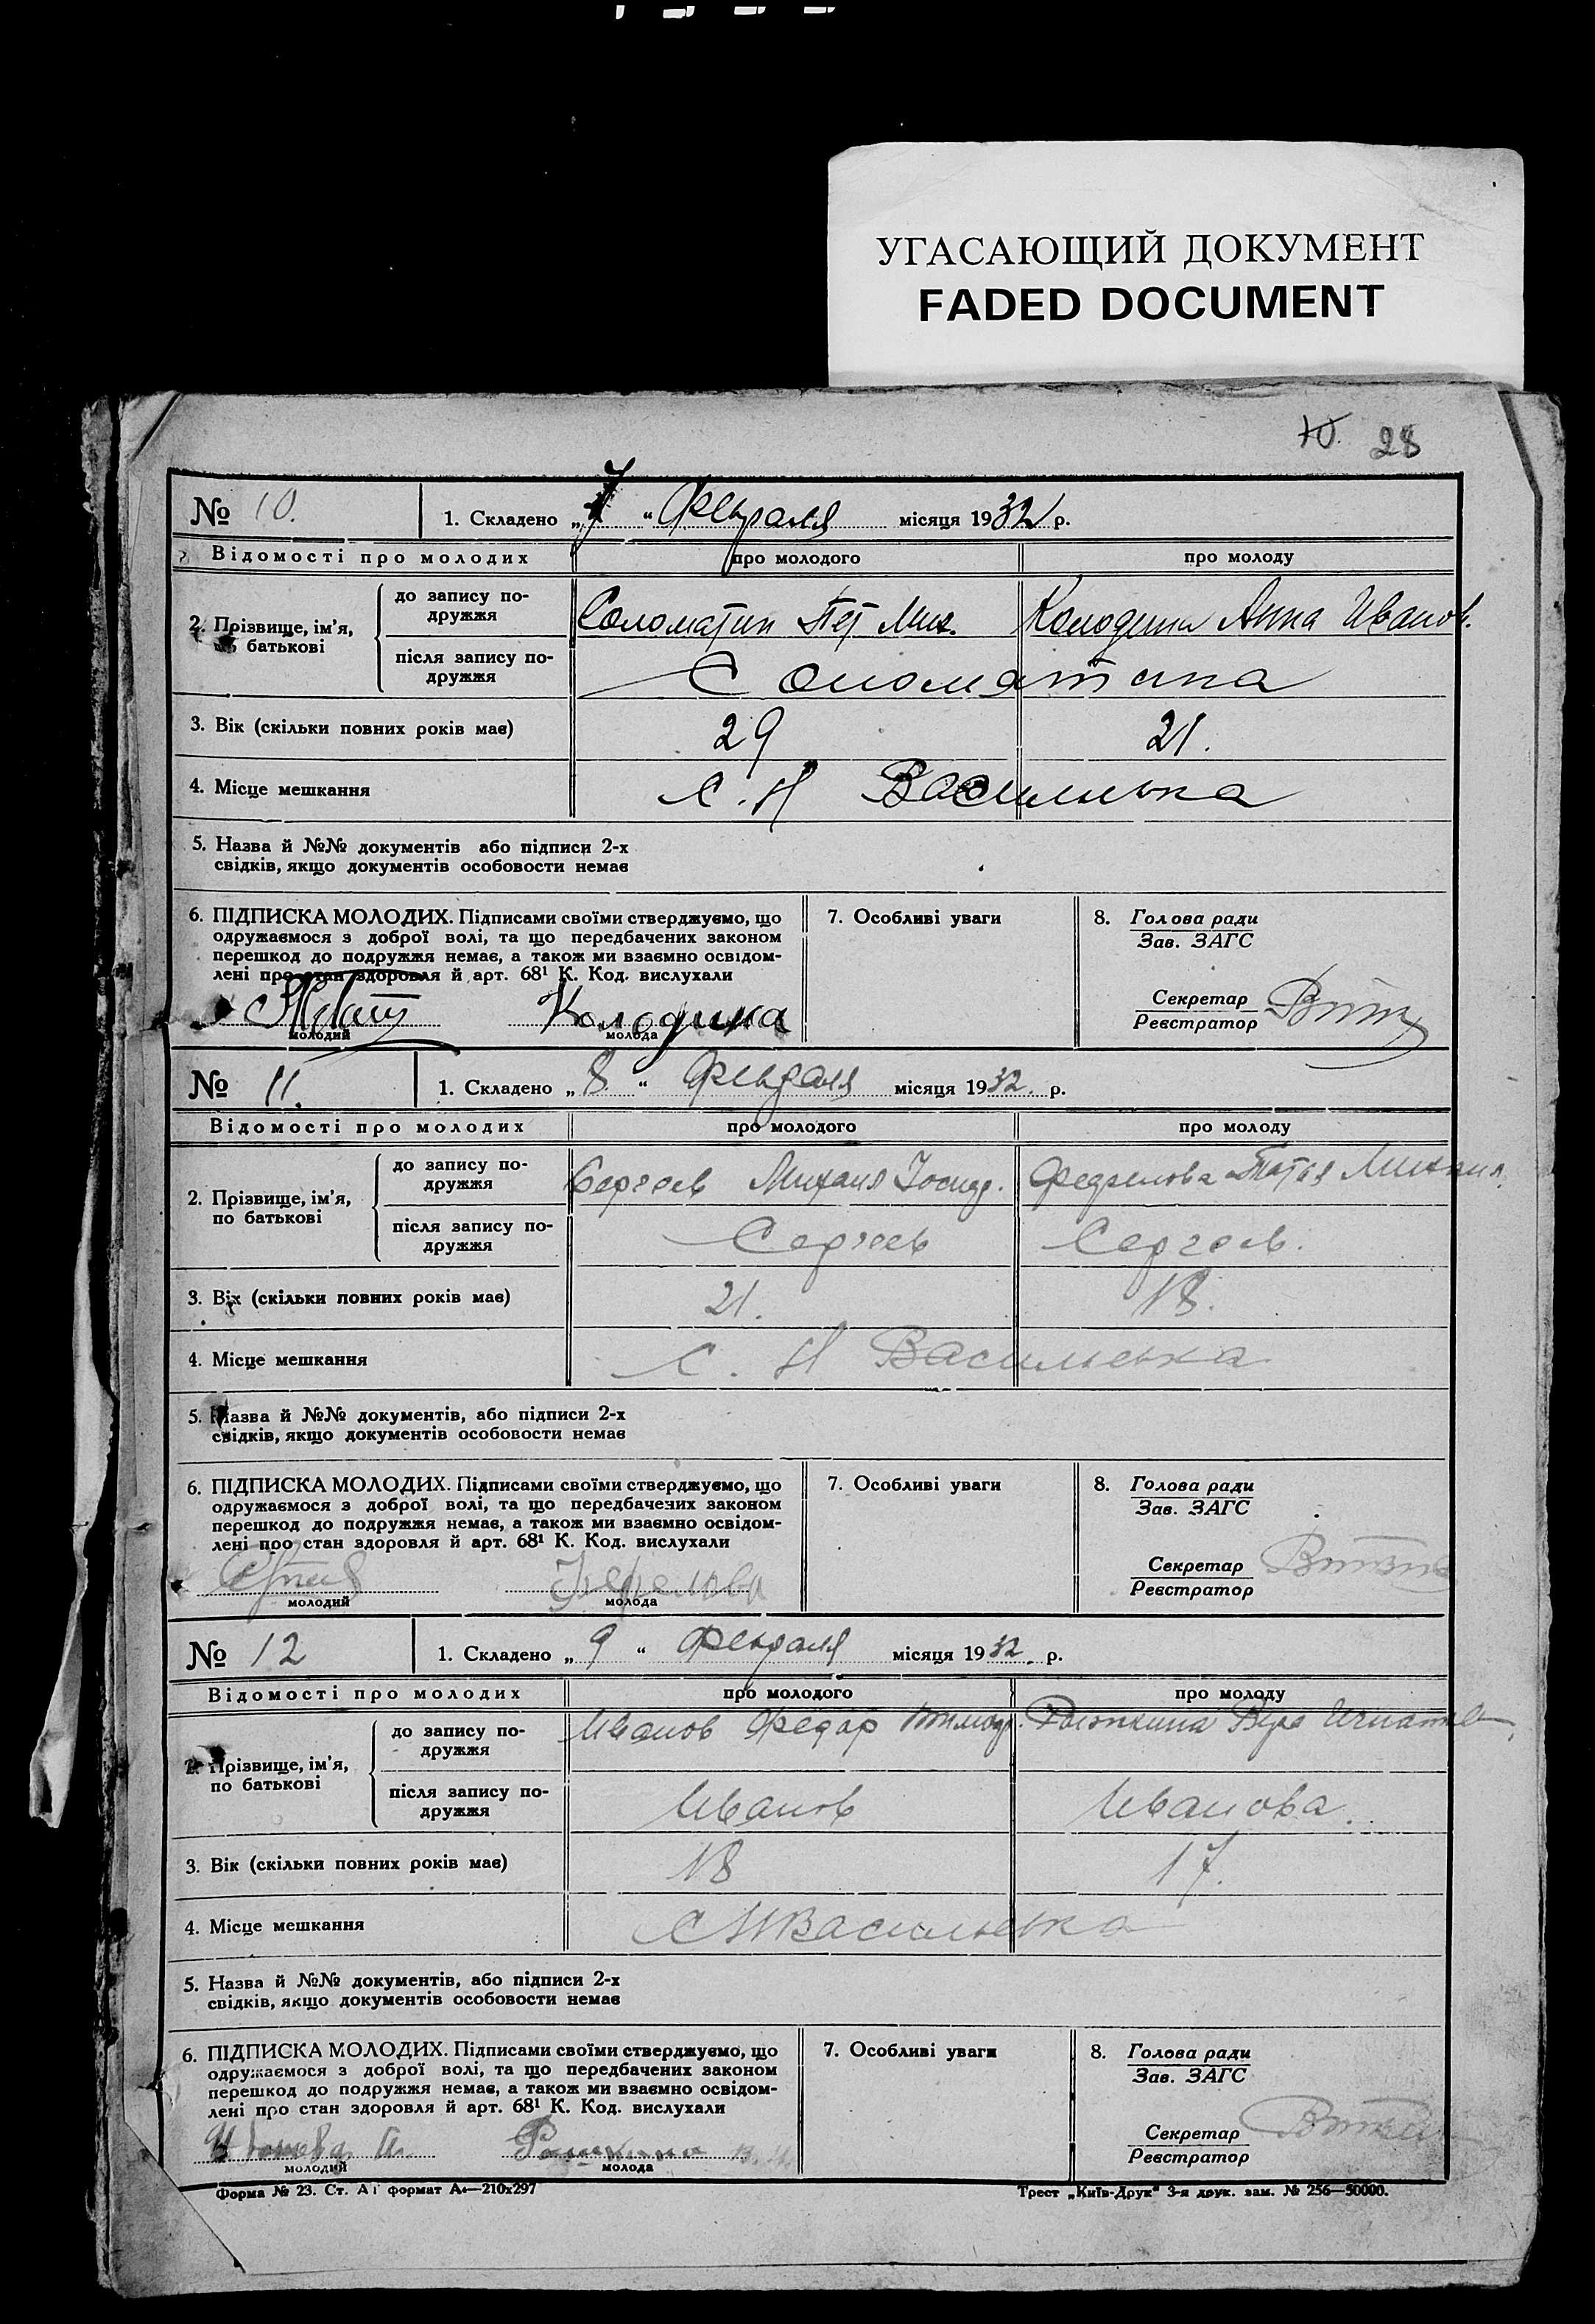 УГАСАЮЩИЙ ДОКУМЕНТ
FADED DOCUMENT
10. 28
№ 10. 1. Складено „7“ Февраля місяця 1932 р.
Відомості про молодих про молодого про молоду
2. Прізвище, ім'я, по батькові
до запису подружжя Соломатин Пет Мих. Колодина Анна Иванов.
після запису подружжя Соломатина
3. Вік (скільки повних років має) 29 21.
4. Місце мешкання с. Н Васильевка
5. Назва й №№ документів або підписи 2-х
свідків, якщо документів особовости немає
6. ПІДПИСКА МОЛОДИХ. Підписами своїми стверджуємо, що 7. Особливі уваги 8. Голова ради
одружаємося з доброї волі, та що передбачених законом Зав. ЗАГС
перешкод до подружжя немає, а також ми взаємно освідом-
лені про стан здоровля й арт. 68¹ К. Код. вислухали
Колодина Секретар
молодий молода Реєстратор
№ 11. 1. Складено „8“ Февраля місяця 1932. р.
Відомості про молодих про молодого про молоду
2. Прізвище, ім'я, по батькові
до запису подружжя Сергеев Михаил Михаил.
після запису подружжя Сергеев Сергеев.
3. Вік (скільки повних років має) 21. 18.
4. Місце мешкання с. Н Васильевка
5. Назва й №№ документів, або підписи 2-х
свідків, якщо документів особовости немає
6. ПІДПИСКА МОЛОДИХ. Підписами своїми стверджуємо, що 7. Особливі уваги 8. Голова ради
одружаємося з доброї волі, та що передбачених законом Зав. ЗАГС
перешкод до подружжя немає, а також ми взаємно освідом-
лені про стан здоровля й арт. 68¹ К. Код. вислухали
Секретар
молодий молода Реєстратор
№ 12 1. Складено „9“ Февраля місяця 1932. р.
Відомості про молодих про молодого про молоду
2. Прізвище, ім'я, по батькові
до запису подружжя Иванов Федор Вера
після запису подружжя Иванов Иванова.
3. Вік (скільки повних років має) 18 17.
4. Місце мешкання С Н Васильевка
5. Назва й №№ документів, або підписи 2-х
свідків, якщо документів особовости немає
6. ПІДПИСКА МОЛОДИХ. Підписами своїми стверджуємо, що 7. Особливі уваги 8. Голова ради
одружаємося з доброї волі, та що передбачених законом Зав. ЗАГС
перешкод до подружжя немає, а також ми взаємно освідом-
лені про стан здоровля й арт. 68¹ К. Код. вислухали
Секретар
молодий молода Реєстратор
Форма № 23. Ст. А і формат А₄—210х297 Трест „Київ-Друк“ 3-я друк. зам. № 256—50000.